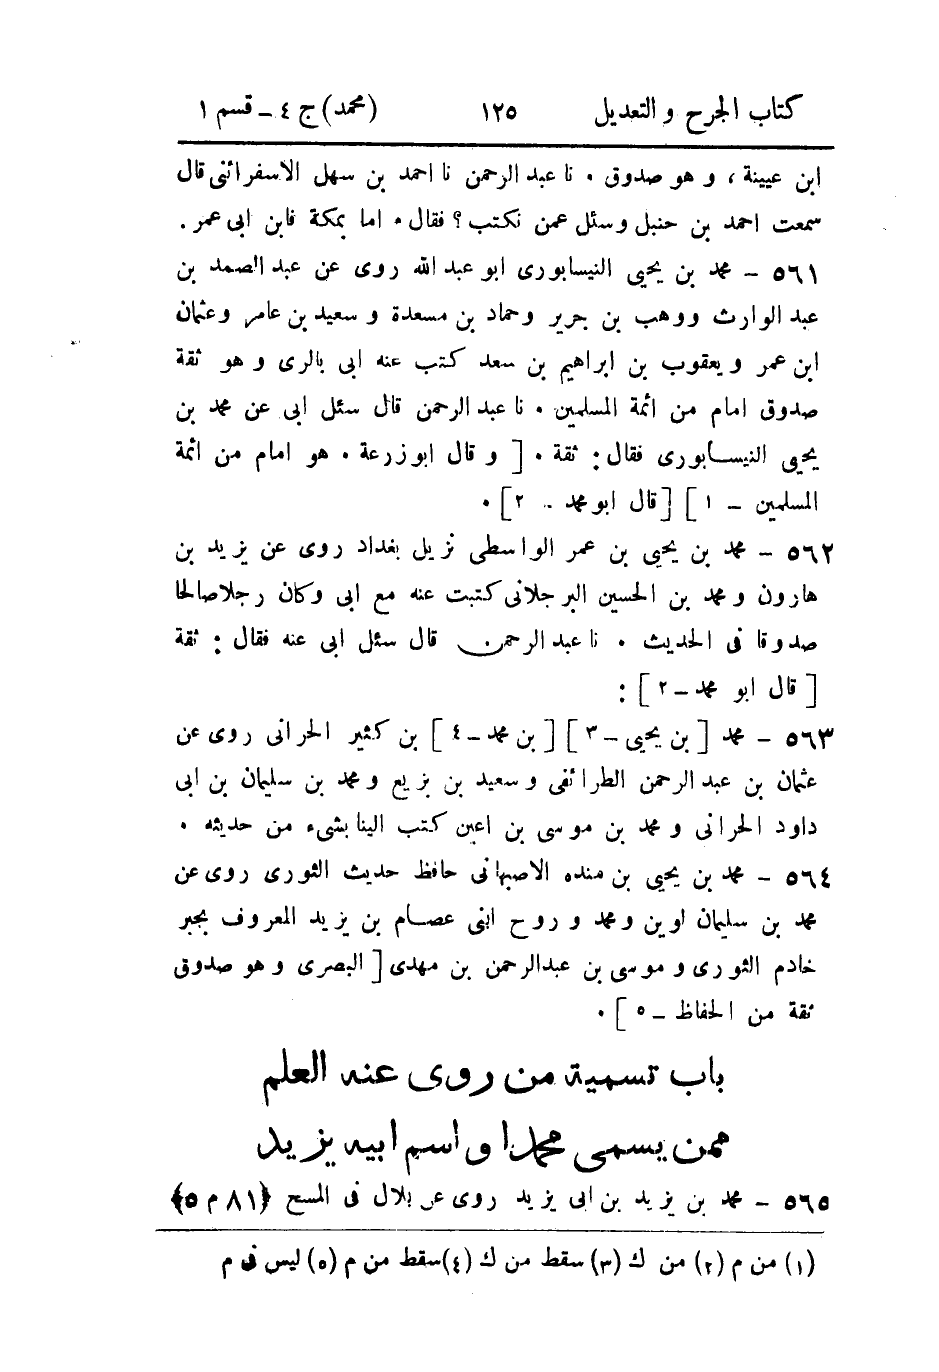 كتاب الجرح و التعديل ١٢٥ (محمد) ج ٤ ـ قسم ١
ابن عيينة ، و هو صدوق . نا عبد الرحمن نا احمد بن سهل الاسفرائنى قال
سمعت احمد بن حنبل و سئل عمن نكتب ؟ فقال . اما بمكة فابن ابى عمر .
٥٦١ ـ محمد بن يحيى النيسابورى ابو عبد الله روى عن عبد الصمد بن
عبد الوارث ووهب بن جرير وحماد بن مسعدة و سعيد بن عامر وعثمان
ابن عمر و يعقوب بن ابراهيم بن سعد كتب عنه ابى بالرى و هو ثقة
صدوق امام من ائمة المسلمين . نا عبد الرحمن قال سئل ابى عن محمد بن
يحيى النيسابورى فقال : ثقة . [ و قال ابوزرعة . هو امام من ائمة
المسلمين ـ ١ ] [ قال ابو محمد ـ ٢ ] .
٥٦٢ ـ محمد بن يحيى بن عمر الواسطى نزيل بغداد روى عن يزيد بن
هارون و محمد بن الحسين البرجلانى كتبت عنه مع ابى وكان رجلا صالحا
صدوقا فى الحديث . نا عبد الرحمن قال سئل ابى عنه فقال : ثقة
[ قال ابو محمد ـ ٢ ] :
٥٦٣ ـ محمد [ بن يحيى ـ ٣ ] [ بن محمد ـ ٤ ] بن كثير الحرانى روى عن
عثمان بن عبد الرحمن الطرائفى و سعيد بن بزيع و محمد بن سليمان بن ابى
داود الحرانى و محمد بن موسى بن اعين كتب الينا بشىء من حديثه .
٥٦٤ ـ محمد بن يحيى بن منده الاصبهانى حافظ حديث الثورى روى عن
محمد بن سليمان لوين و محمد و روح ابنى عصام بن يزيد المعروف بجبر
خادم الثورى و موسى بن عبدالرحمن بن مهدى [ البصرى و هو صدوق
ثقة من الحفاظ ـ ٥ ] .
باب تسمية من روى عنه العلم
ممن يسمى محمدا و اسم ابيه يزيد
٥٦٥ ـ محمد بن يزيد بن ابى يزيد روى عن بلال فى المسح (٨١ م ٥)
(١) من م (٢) من ك (٣) سقط من ك (٤) سقط من م (٥) ليس فى م